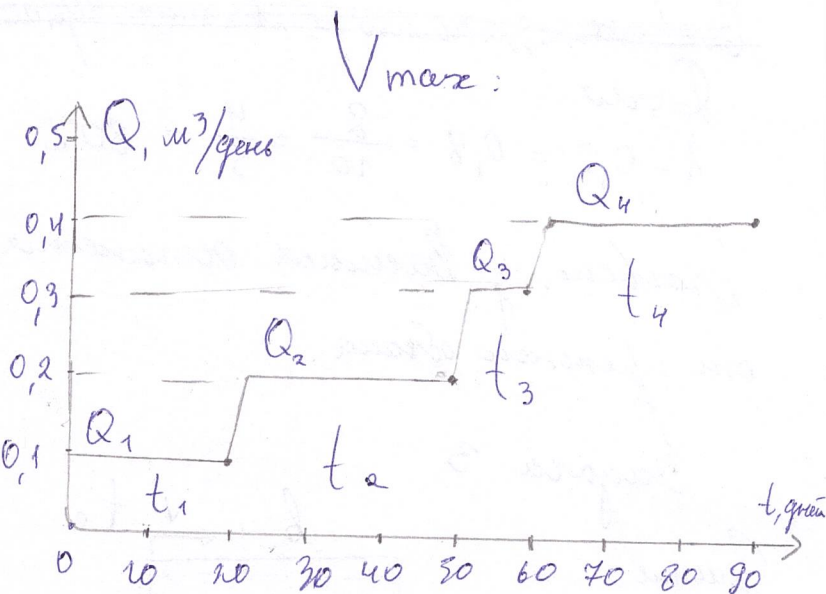 Vmax:
Q, м³/день
0,5
0,4
0,3
0,2
0,1
Q₁
Q₂
Q₃
Q₄
t₁
t₂
t₃
t₄
t, дней
0 10 20 30 40 50 60 70 80 90